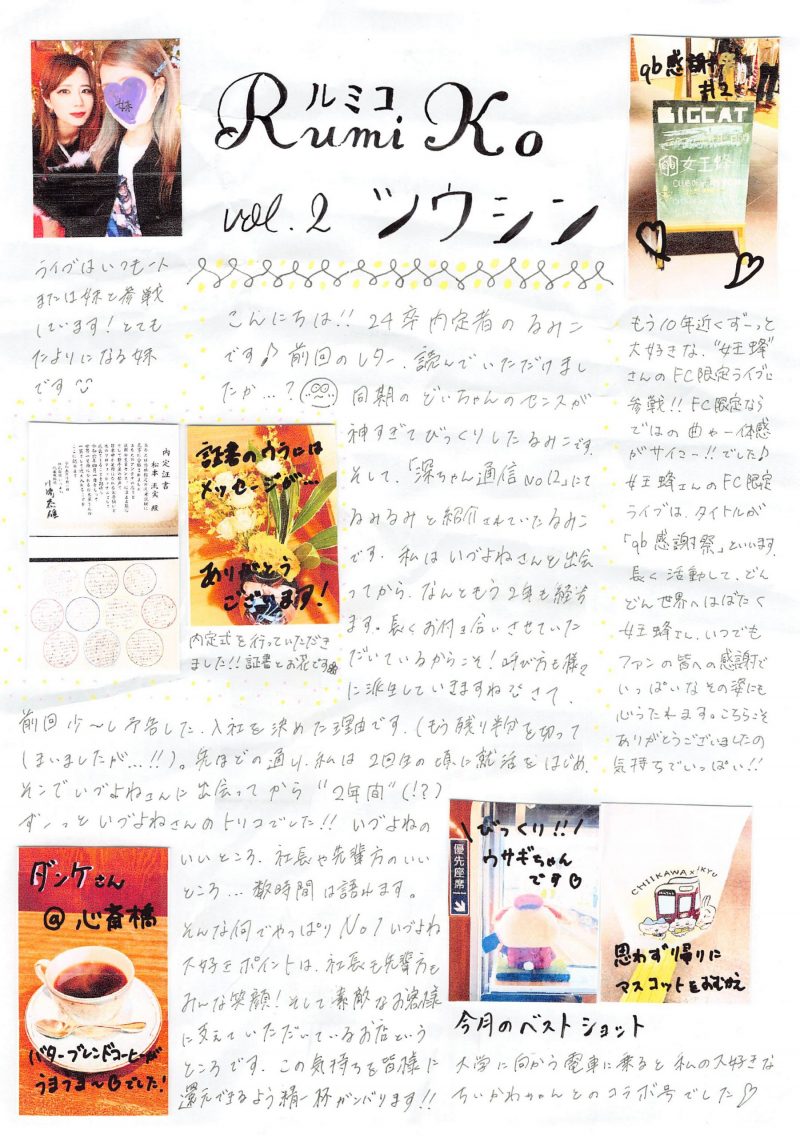 ルミコ
Rumi Ko
vol.2 ツウシン
妹
ライブはいつも一人
または妹と参戦
しています！とても
たよりになる妹
です
qb感謝祭
#2
BIGCAT
女王蜂
もう10年近くずーっと
大好きな、"女王蜂"
さんのFC限定ライブに
参戦!! FC限定なら
ではの曲や一体感
がサイコー!!でした♪
女王蜂さんのFC限定
ライブは、タイトルが
「qb感謝祭」といいます。
長く活動して、どん
どん世界へはばたく
女王蜂さん、いつでも
ファンの皆への感謝で
いっぱいなその姿にも
心うたれます。こちらこそ
ありがとうございましたの
気持ちでいっぱい!!
こんにちは!! 24卒内定者のるみこ
です♪前回のレター、読んでいただけまし
たか…？ 同期のどいちゃんのセンスが
神すぎてびっくりしたるみこです。
そして、「深ちゃん通信No12」にて
るみるみと紹介されていたるみこ
です。私はいづよねさんと出会
ってから、なんともう2年も経ち
ます。長くお付き合いさせていた
だいているからこそ！呼び方も様々
に派生していきますね さて、
前回少〜し予告した、入社を決めた理由です。(もう残り半分を切って
しまいましたが…!!)。先ほどの通り、私は2回生の頃に就活をはじめ、
そこでいづよねさんに出会ってから "2年間"(!?)
ずーっといづよねさんのトリコでした!! いづよねの
いいところ、社長や先輩方のいい
ところ…数時間は語れます。
そんな何でやっぱりNo1いづよね
大好きポイントは、社長も先輩方も
みんな笑顔！そして素敵なお客様
に支えていただいているお店という
ところです。この気持ちを皆様に
還元できるよう精一杯がンバります!!
内定証書
松本 殿
証書のウラには
メッセージが…
ありがとう
ございます！
内定式を行っていただき
ました!!証書とお花です
ダンケさん
@心斎橋
バターブレンドコーヒーが
うまうま〜♡でした！
\びっくり!!/
ウサギちゃん
です♡
優先座席
CHIIKAWA×
思わず帰りに
マスコットをおむかえ
今月のベストショット
大学に向かう電車に乗ると私の大好きな
ちいかわちゃんとのコラボ号でした♡